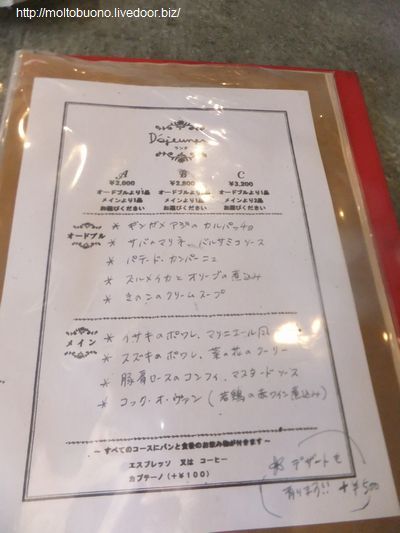 http://moltobuono.livedoor.biz/
Déjeuner
ランチ
A
¥2,000
オードブルより1品
メインより1品
お選びください
B
¥2,500
オードブルより2品
メインより1品
お選びください
C
¥3,200
オードブルより1品
メインより2品
お選びください
オードブル
* ギンガメアジのカルパッチョ
* サバのマリネ、バルサミコソース
* パテ・ド・カンパーニュ
* スルメイカとオリーブの煮込み
* きのこのクリームスープ
メイン
* イサキのポワレ、マリニエール風
* スズキのポワレ、菜の花のクーリー
* 豚肩ロースのコンフィ、マスタードソース
* コック・オ・ヴァン(若鶏の赤ワイン煮込み)
~すべてのコースにパンと食後のお飲み物が付きます~
エスプレッソ 又は コーヒー
カプチーノ(+¥100)
デザートも
有ります!! +¥500